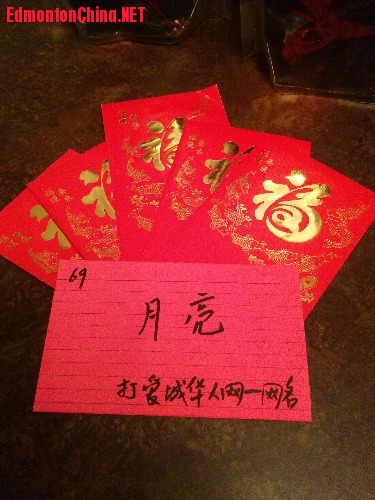 EdmontonChina.NET
福
福
福
福
69
月亮
打爱城华人网一网名